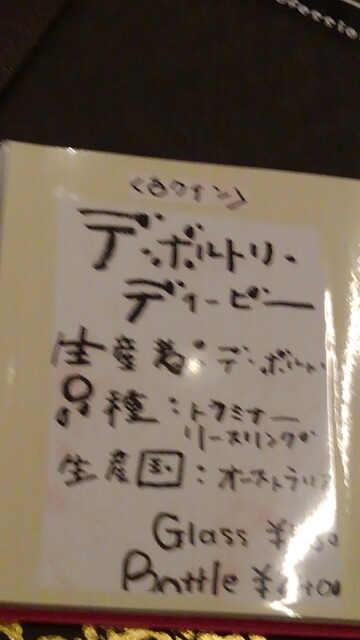 <白ワイン>
デ・ボルトリ・
ディービー
生産者：デ・ボルトリ
品種：トラミナー
リースリング
生産国：オーストラリア
Glass
Bottle